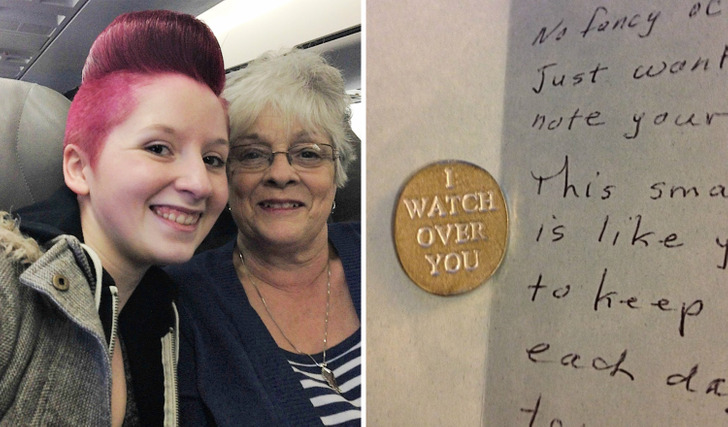 I
WATCH
OVER
YOU
No fancy
Just want
note your
This
is like
to keep
each
to